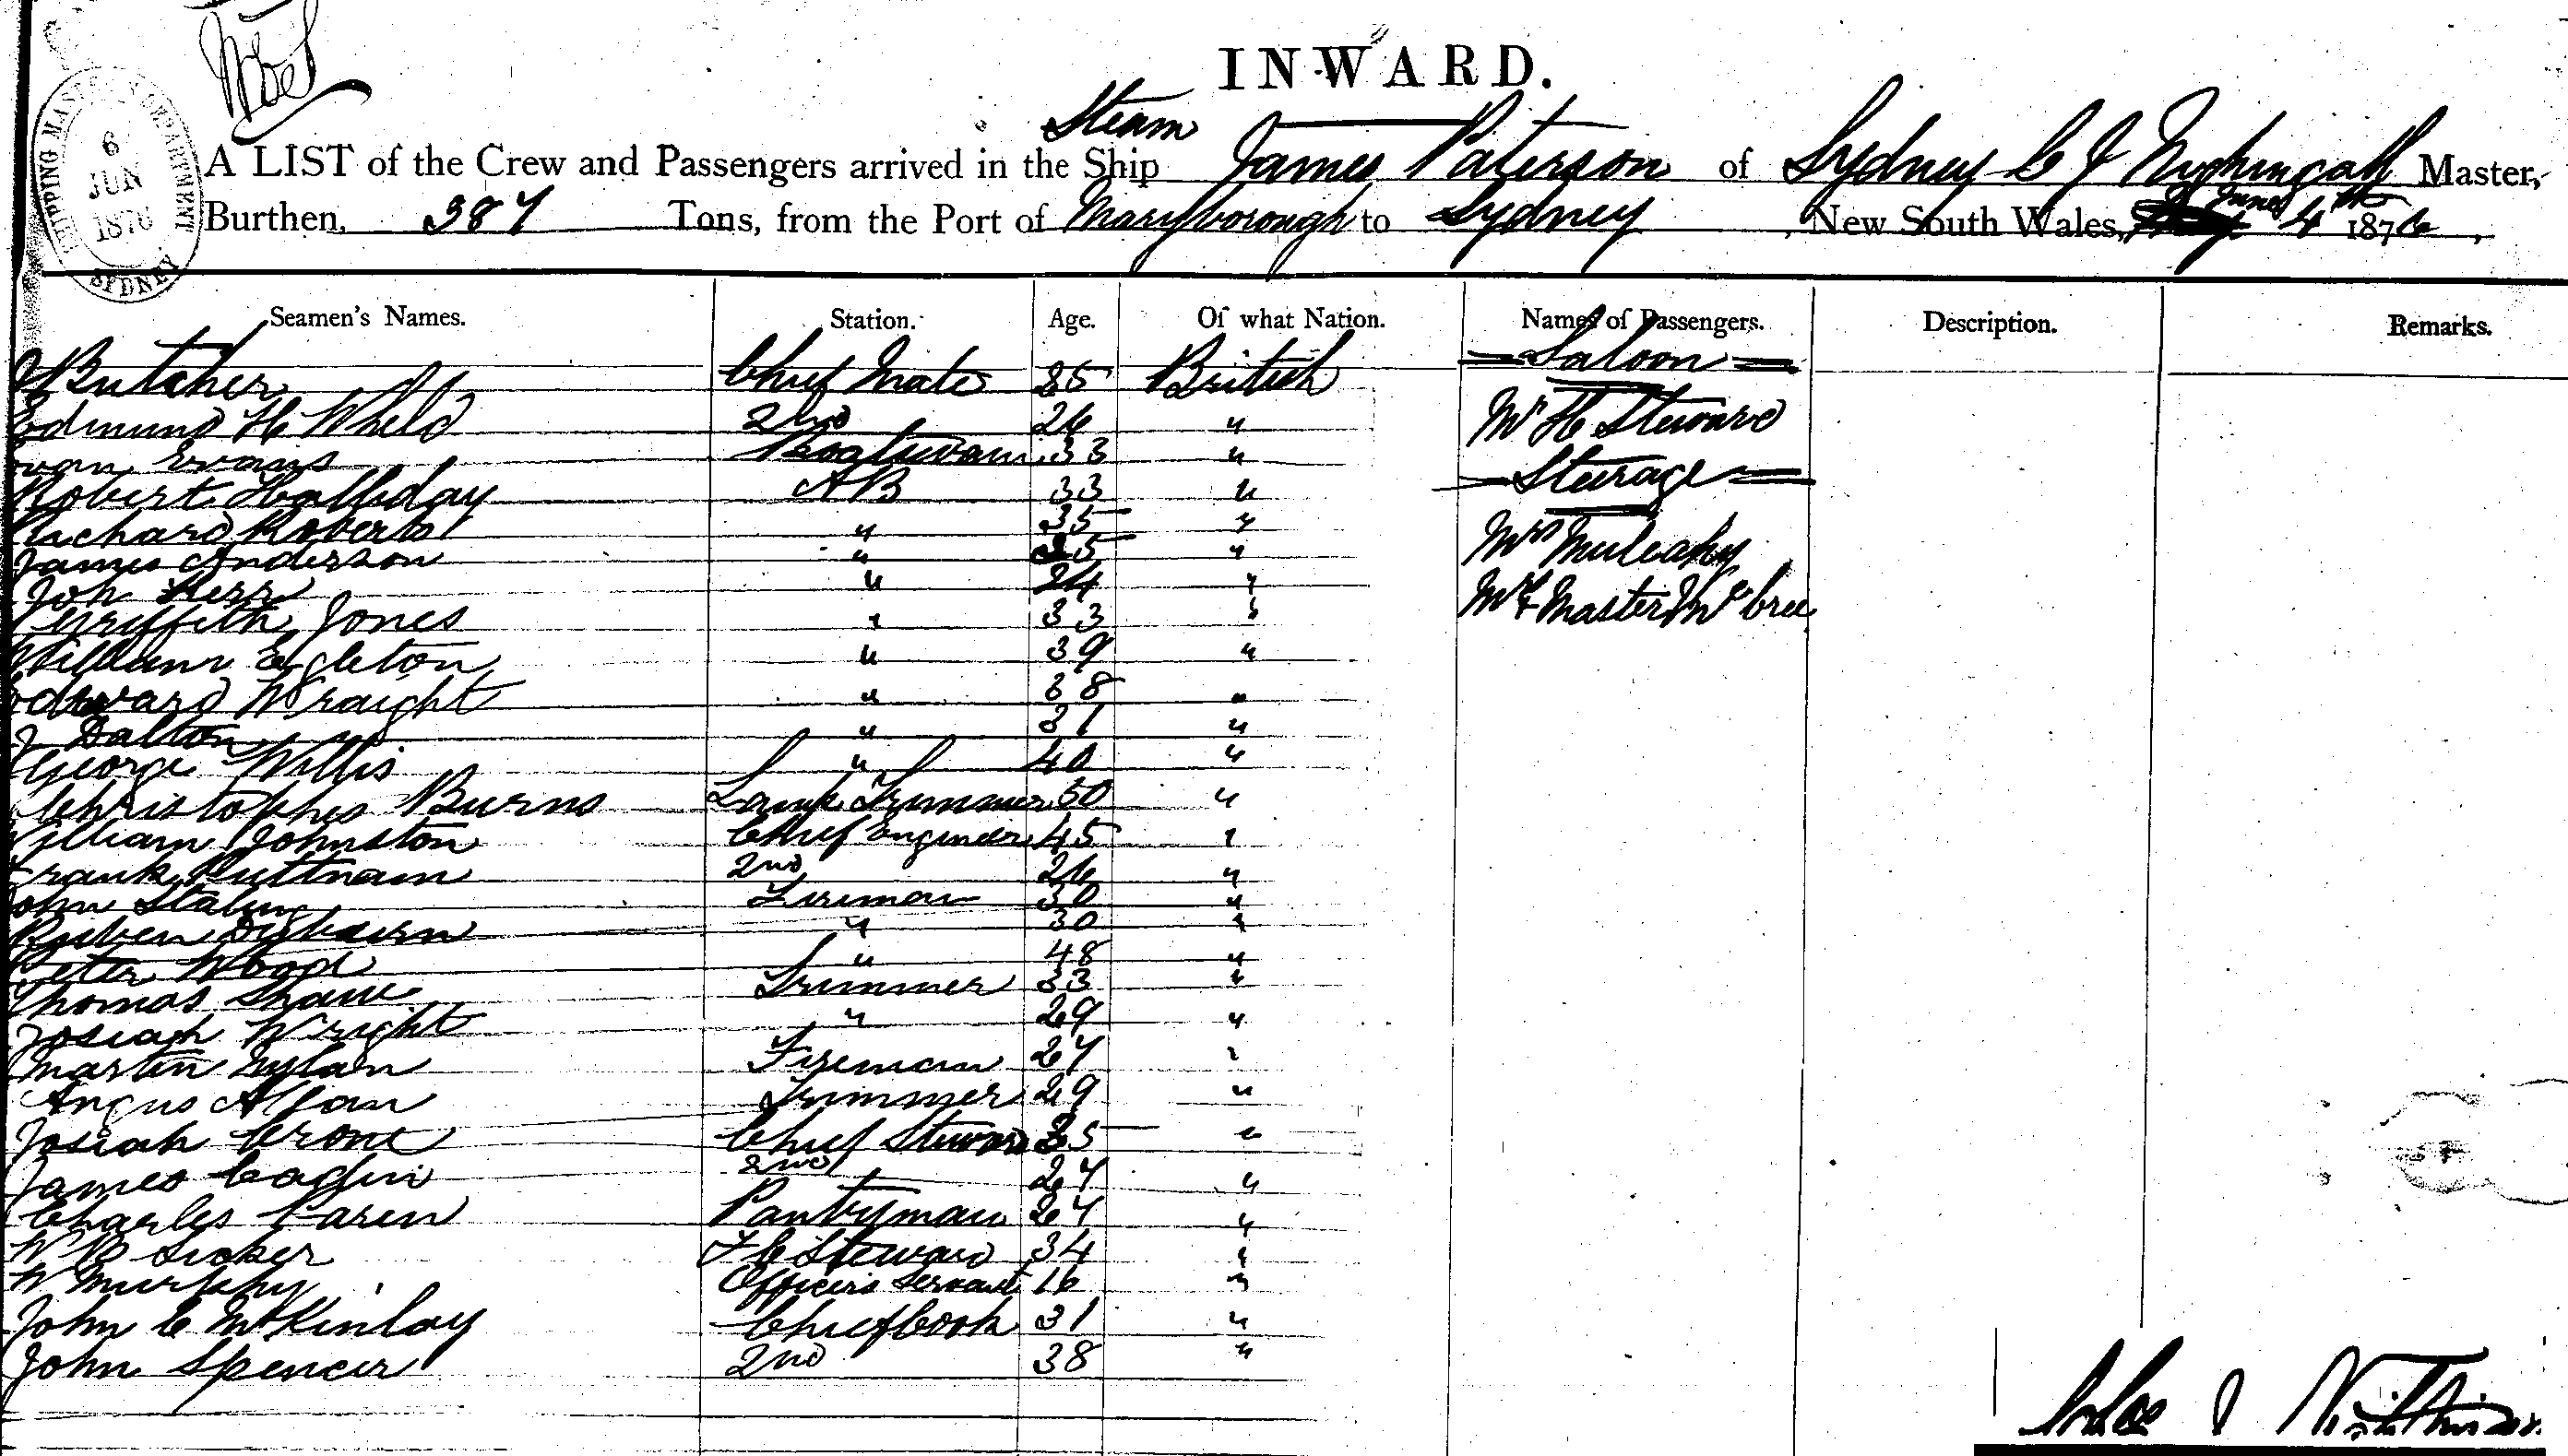 INWARD.
Steam
A LIST of the Crew and Passengers arrived in the Ship James Paterson of Sydney C J Nightingall Master,
Burthen, 387 Tons, from the Port of Maryborough to Sydney, New South Wales, June 4th 1876,
SHIPPING MASTER'S DEPARTMENT
6
JUN
1876
SYDNEY
Seamen's Names. Station. Age. Of what Nation. Names of Passengers. Description. Remarks.
Saloon
J Butcher Chief Mate 25 British
Mr H Steward
Edmund H Wheld 2nd 26 "
Evan Evans Boatswain 33 "
Steerage
Robert Halliday AB 33 "
Richard Roberts " 35 "
Mrs Mulcahy
James Anderson " 25 "
Joh Kerr " 24 "
Mr & Master McCree
Griffith Jones " 33 "
William Egleton " 39 "
Edward Wraight " 38 "
J Dalton " 31 "
George Willis " 40 "
Christopher Burns Lamp Trimmer 50 "
William Johnston Chief Engineer 45 "
Frank Puttnam 2nd 26 "
John Fireman 30 "
Ruben " 30 "
Peter Wood " 48 "
Thomas Shaw Trimmer 33 "
Josiah Wright " 29 "
Martin Fireman 27 "
Angus Allan Trimmer 29 "
Josiah Crone Chief Steward 25 "
James 2nd 27 "
Charles Pantryman 27 "
W B F C Steward 34 "
W Murphy Officers Servant 16 "
John C McKinlay Chief Cook 31 "
John Spencer 2nd 38 "